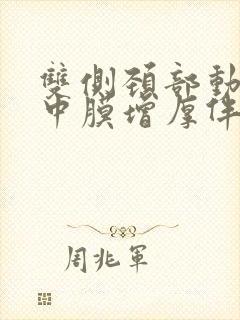 雙側頚部動
中膜增厚伴
周兆軍